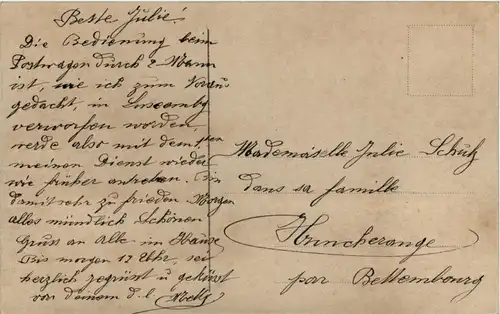 Beste Julie!
Die Bedienung beim
Postwagen durch 2 Mann
ist, wie ich zum Voraus
gedacht, in Luxembg
verworfen worden,
werde also mit dem
meinen Dienst wieder
wie früher antreten. Bin
damit sehr zu frieden Morgen
alles mündlich Schönen
Gruss an Alle im Hause
Bis morgen 12 Uhr, sei
herzlich gegrüsst u geküsst
von deinem d. l.
Mademoiselle Julie Schütz
dans sa famille
Huncherange
par Bettembourg